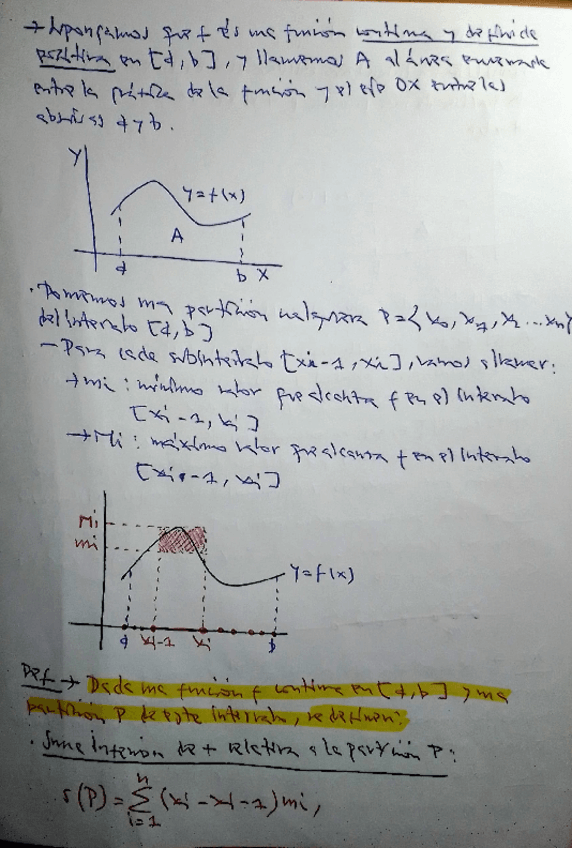 → Supongamos que f es una función continua y definida
positiva en [a,b], y llamemos A al área encerrada
entre la gráfica de la función y el eje OX entre las
abscisas a y b.
Y
y=f(x)
A
a b X
· Tomemos una partición cualquiera P={x0, x1, x2 ... xn}
del intervalo [a,b]
- Para cada subintervalo [xi-1, xi], vamos a llamar:
→ mi: mínimo valor que alcanza f en el intervalo
[xi-1, xi]
→ Mi: máximo valor que alcanza f en el intervalo
[xi-1, xi]
Mi
mi
y=f(x)
a xi-1 xi b
Def → Dada una función f continua en [a,b] y una
partición P de este intervalo, se definen:
· Suma inferior de f relativa a la partición P:
s(P) = n∑i=1 (xi - xi-1) mi,